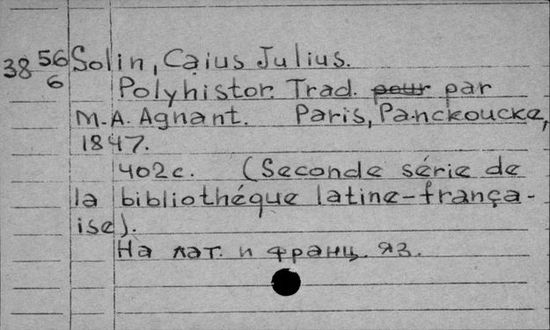 38 56 Solin, Caius Julius.
6 Polyhistor. Trad. pour par
M.A. Agnant. Paris, Panckoucke,
1847.
402c. (Seconde série de
la bibliothéque latine-frança-
ise).
На лат. и франц. яз.